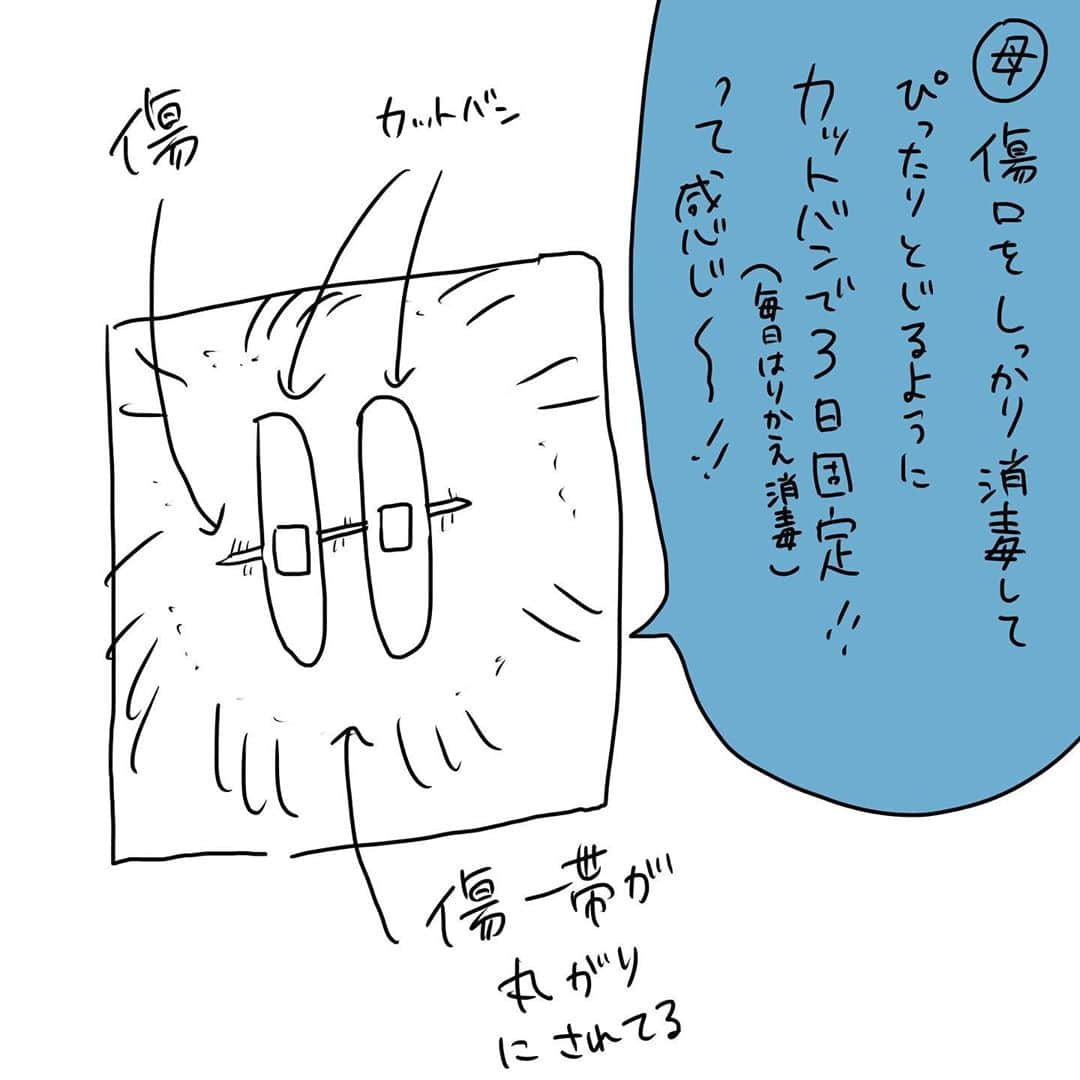 母 傷口をしっかり消毒して
ぴったりとじるように
カットバンで3日固定!!
(毎日はりかえ消毒)
って感じ〜!!
カットバン
傷
傷一帯が
丸がり
にされてる